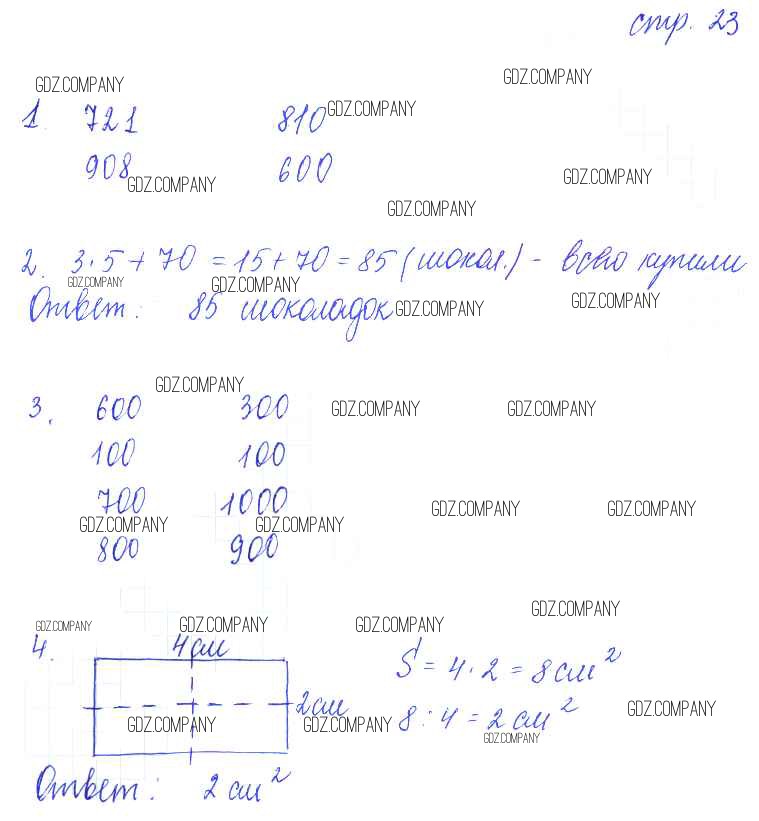 стр. 23
GDZ.COMPANY
GDZ.COMPANY
1. 721 810 GDZ.COMPANY
908 GDZ.COMPANY 600 GDZ.COMPANY
GDZ.COMPANY
2. 3·5+70 = 15+70 = 85 (шокол.) - всего купили
GDZ.COMPANY GDZ.COMPANY
Ответ: 85 шоколадок GDZ.COMPANY GDZ.COMPANY
GDZ.COMPANY
3. 600 300 GDZ.COMPANY GDZ.COMPANY
100 100
700 1000 GDZ.COMPANY GDZ.COMPANY
GDZ.COMPANY GDZ.COMPANY
800 900
GDZ.COMPANY
GDZ.COMPANY GDZ.COMPANY GDZ.COMPANY
4. 4 см S = 4·2 = 8 см²
2 см 8:4 = 2 см² GDZ.COMPANY
GDZ.COMPANY GDZ.COMPANY
GDZ.COMPANY
Ответ: 2 см²